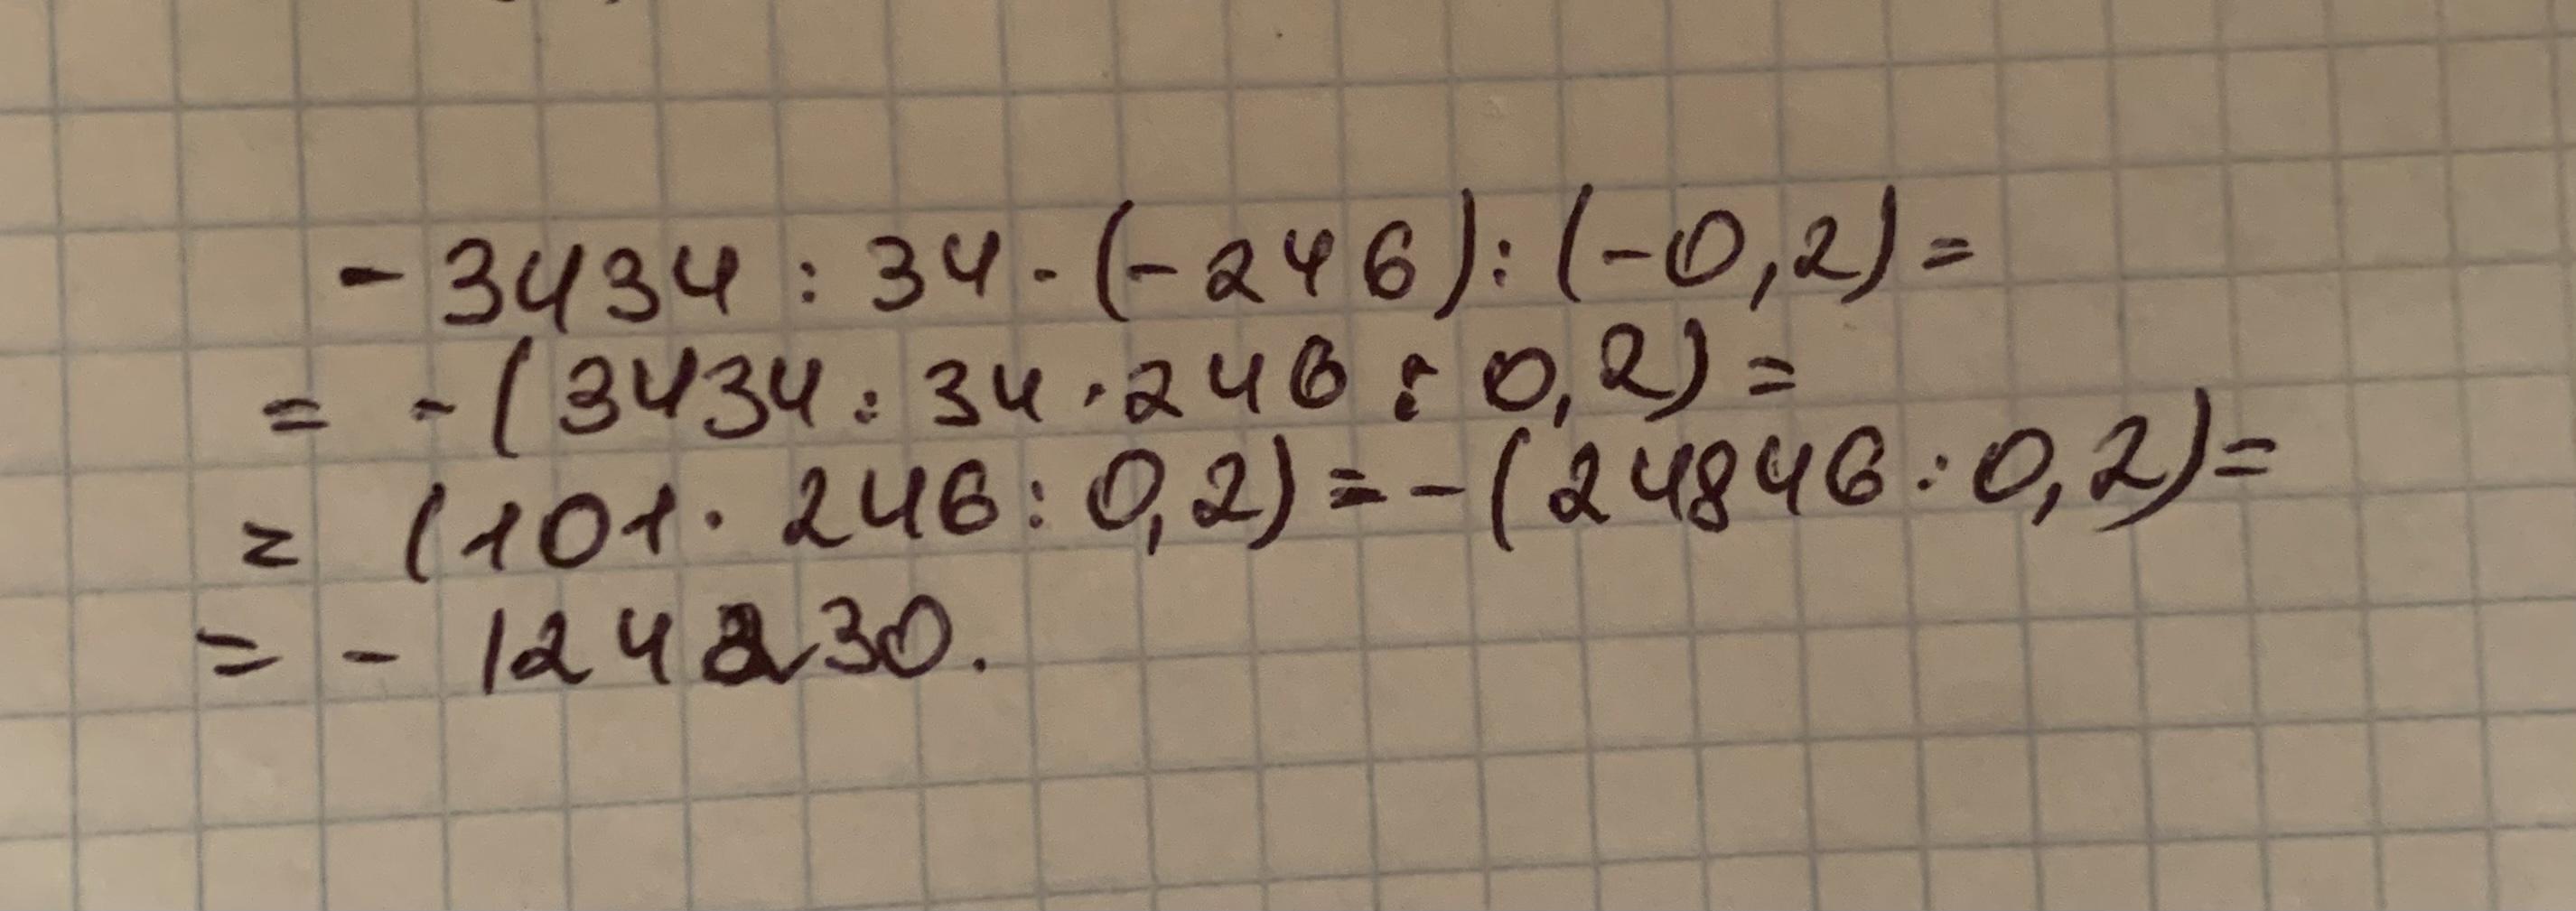 - 3434 : 34 · (- 246) : (- 0,2) =
= - (3434 : 34 · 246 : 0,2) =
= (101 · 246 : 0,2) = - (24846 : 0,2) =
= - 124230.